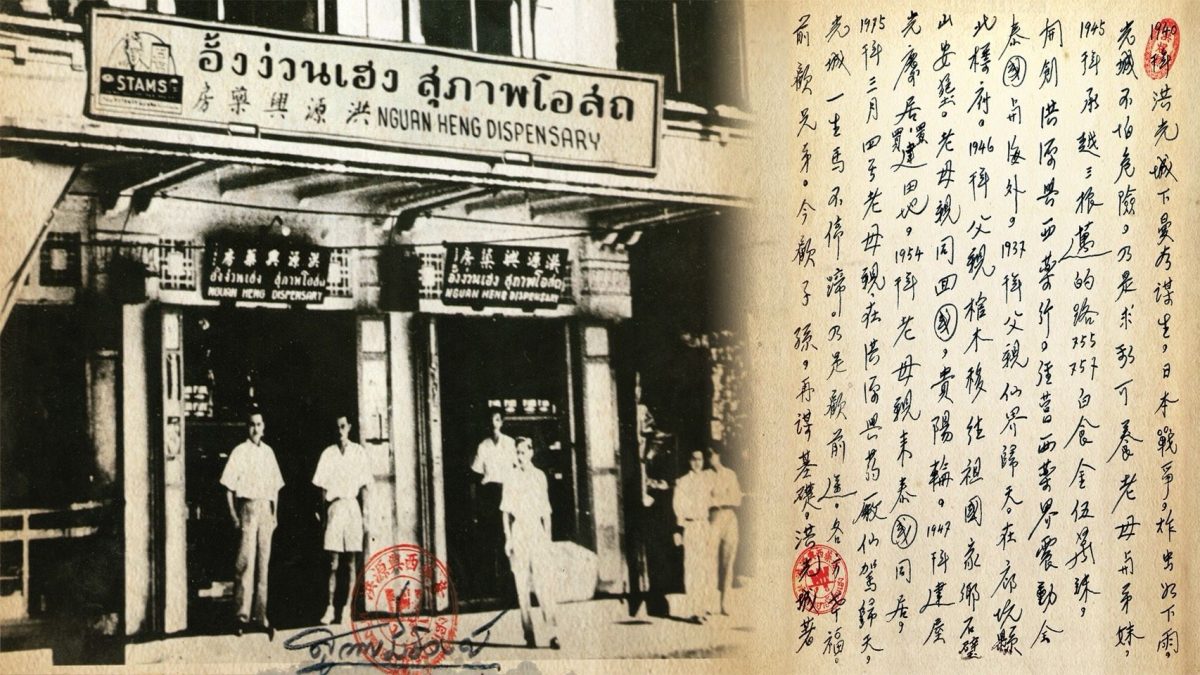 STAMS
อั้งง่วนเฮง สุภาพโอสถ
房藥興源洪 NGUAN HENG DISPENSARY
房藥興源洪
อั้งง่วน เฮง สุภาพโอสถ
NGUAN HENG DISPENSARY
洪源興藥房
อั้งง่วนเฮง สุภาพโอสถ
NGUAN HENG DISPENSARY
1940 洪光城下曼谷謀生，日本戰爭，炸出如下雨，
光城不怕危險，乃是求利可養老母与弟妹，
1945 承越三振的路755 757白食金伍萬銖，
同創洪源興西藥行。經營西藥界震動全
泰國与海外，1937 父親仙界歸天。在
北標府。1946 父親棺木移往祖國家鄉石壁
山安墓。老母親同回國，貴陽輪。1947 建屋
光 居買置建田地，1954 老母親来泰國同居，
1975 三月四号老母親在洪源興葯廠仙駕歸天，
光城一生馬不停蹄。乃是 前途。各 幸福。
前 兄弟。今 子孫，再謀基礎，洪光城著